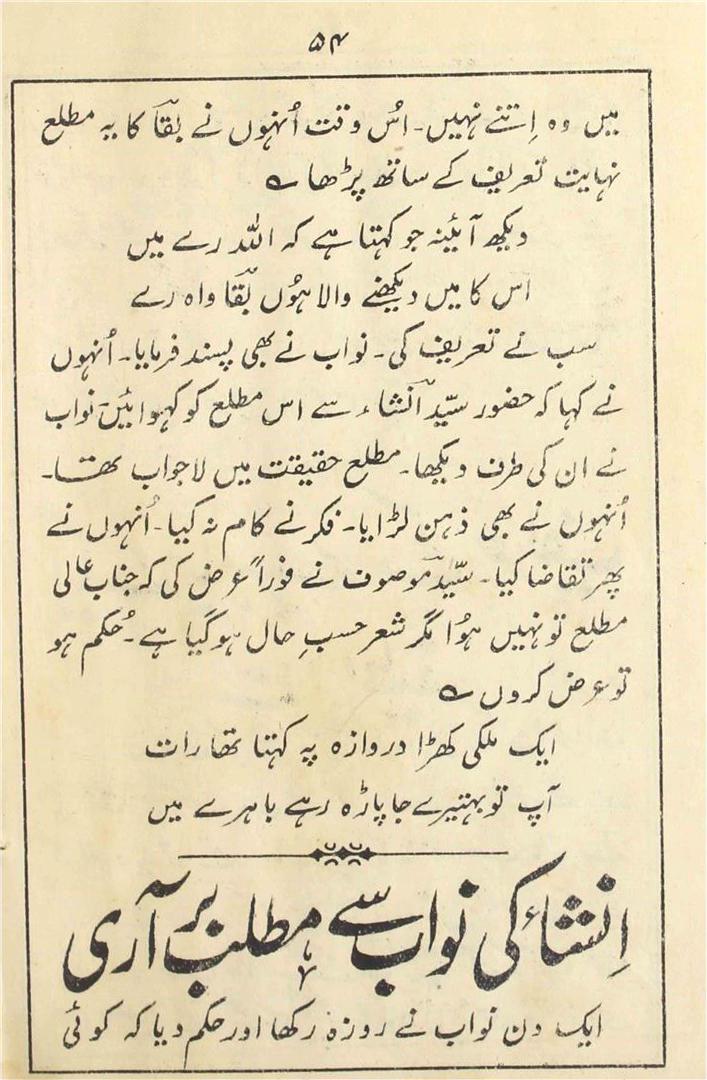 ۵۴
ہیں وہ اِتنے نہیں۔ اُس وقت اُنہوں نے بقاؔ کا یہ مطلع
نہایت تعریف کے ساتھ پڑھا ؎
دیکھ آئینہ جو کہتا ہے کہ اللہ رے میں
اس کا میں دیکھنے والا ہوُں بقاؔ واہ رے
سب نے تعریف کی۔ نواب نے بھی پسند فرمایا۔ اُنہوں
نے کہا کہ حضور سیّد انشاؔء سے اس مطلع کو کہوائیں۔ نواب
نے ان کی طرف دیکھا۔ مطلع حقیقت میں لاجواب تھا۔
اُنہوں نے بھی ذہن لڑایا۔ فکر نے کام نہ کیا۔ اُنہوں نے
پھر تقاضا کیا۔ سیّد موصوف نے فوراً عرض کی کہ جناب عالی
مطلع تو نہیں ہوُا مگر شعر حسبِ حال ہو گیا ہے۔ حُکم ہو
تو عرض کروں ؎
ایک ملکی کھڑا دروازہ پہ کہتا تھا رات
آپ تو بہتیرے جا پاڑہ رہے باہرے میں
اِنشاء کی نواب سے مطلب بر آری
ایک دن نواب نے روزہ رکھا اور حکم دیا کہ کوئی